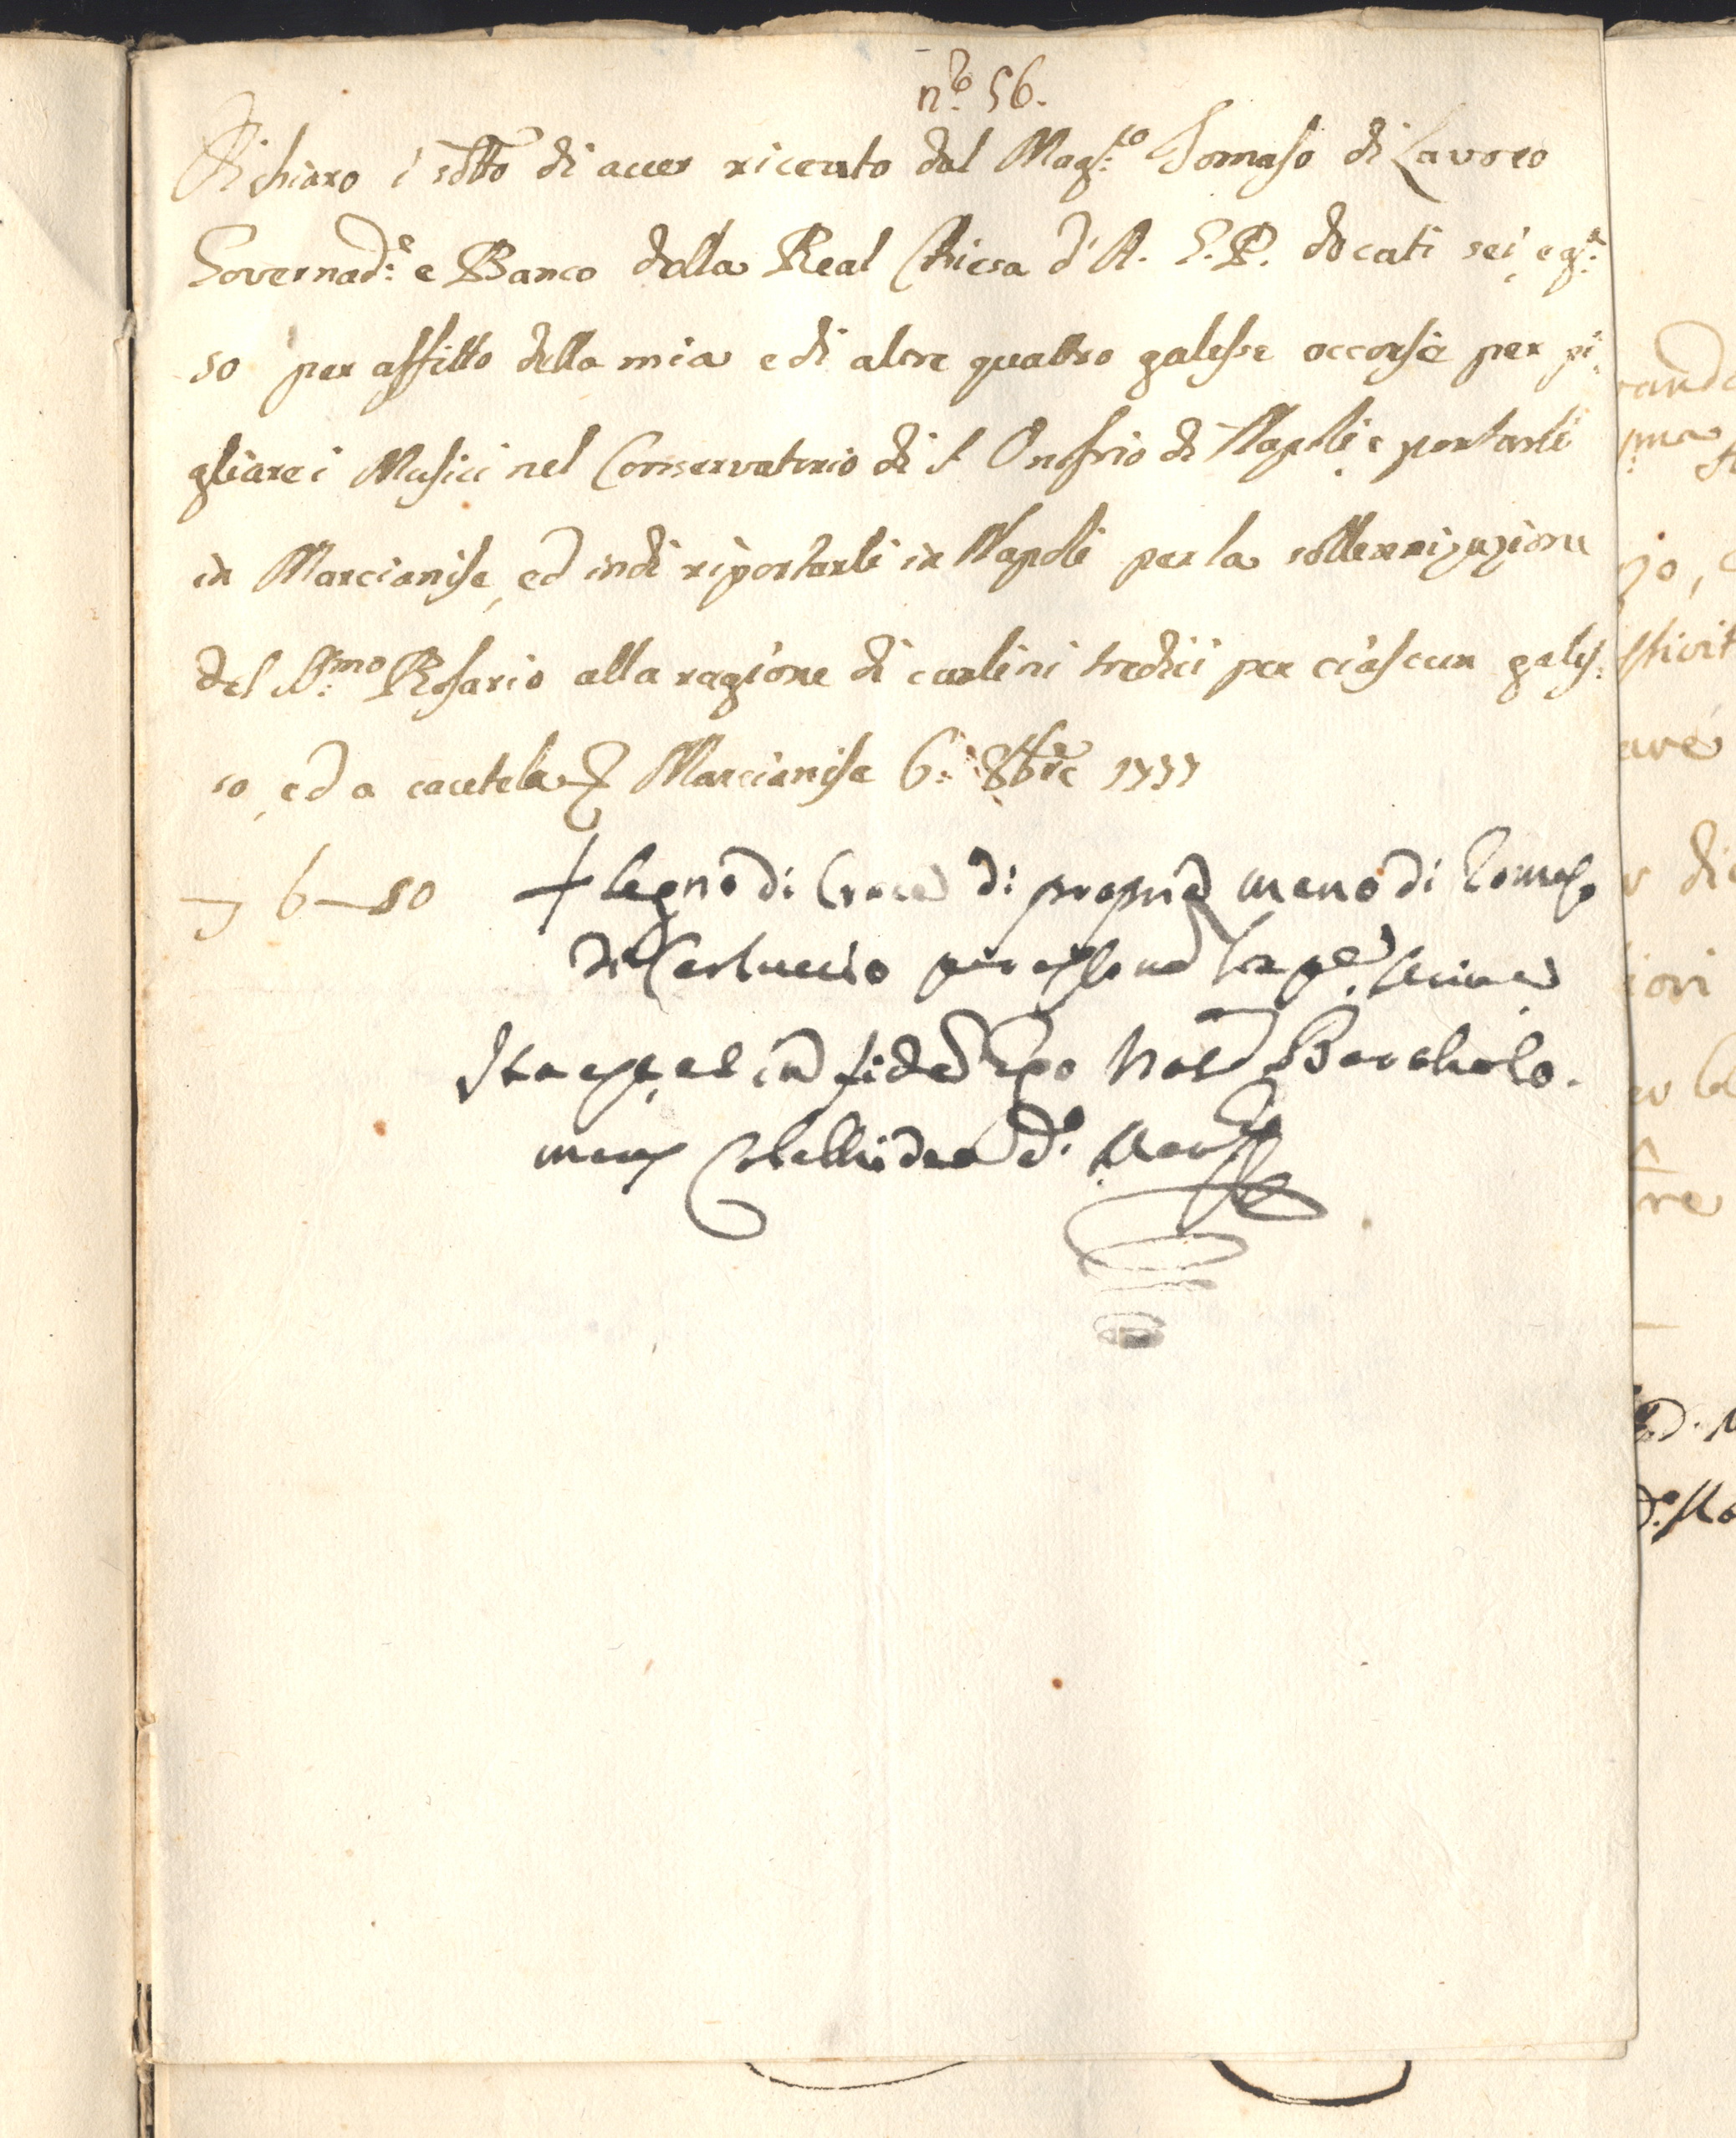 n.ro 56.
Dichiaro i' sotto di aver riceuto dal Mag.co Tomaso di Lavoro
Governad.e e Banco della Real Chiesa d'A. G. P. docati sei, e g.a
50 per affitto della mia e di altre quattro galesse occorse per pi:
gliare i Musici nel Conservatorio di S Onofrio di Napoli e portarli
in Marcianise, ed indi riportarli in Napoli per la sollennizazione
del SS.mo Rosario alla ragione di carlini tredici per ciascun gales:
so, ed a cautela Marcianise 6: 8bre 1777
6 — 50
+ Segno di Croce di propria mano di Tomaso
di Carluccio per esserno scrivere
Ita est, et in fidem Ego Not. Bartholo.
meus d.